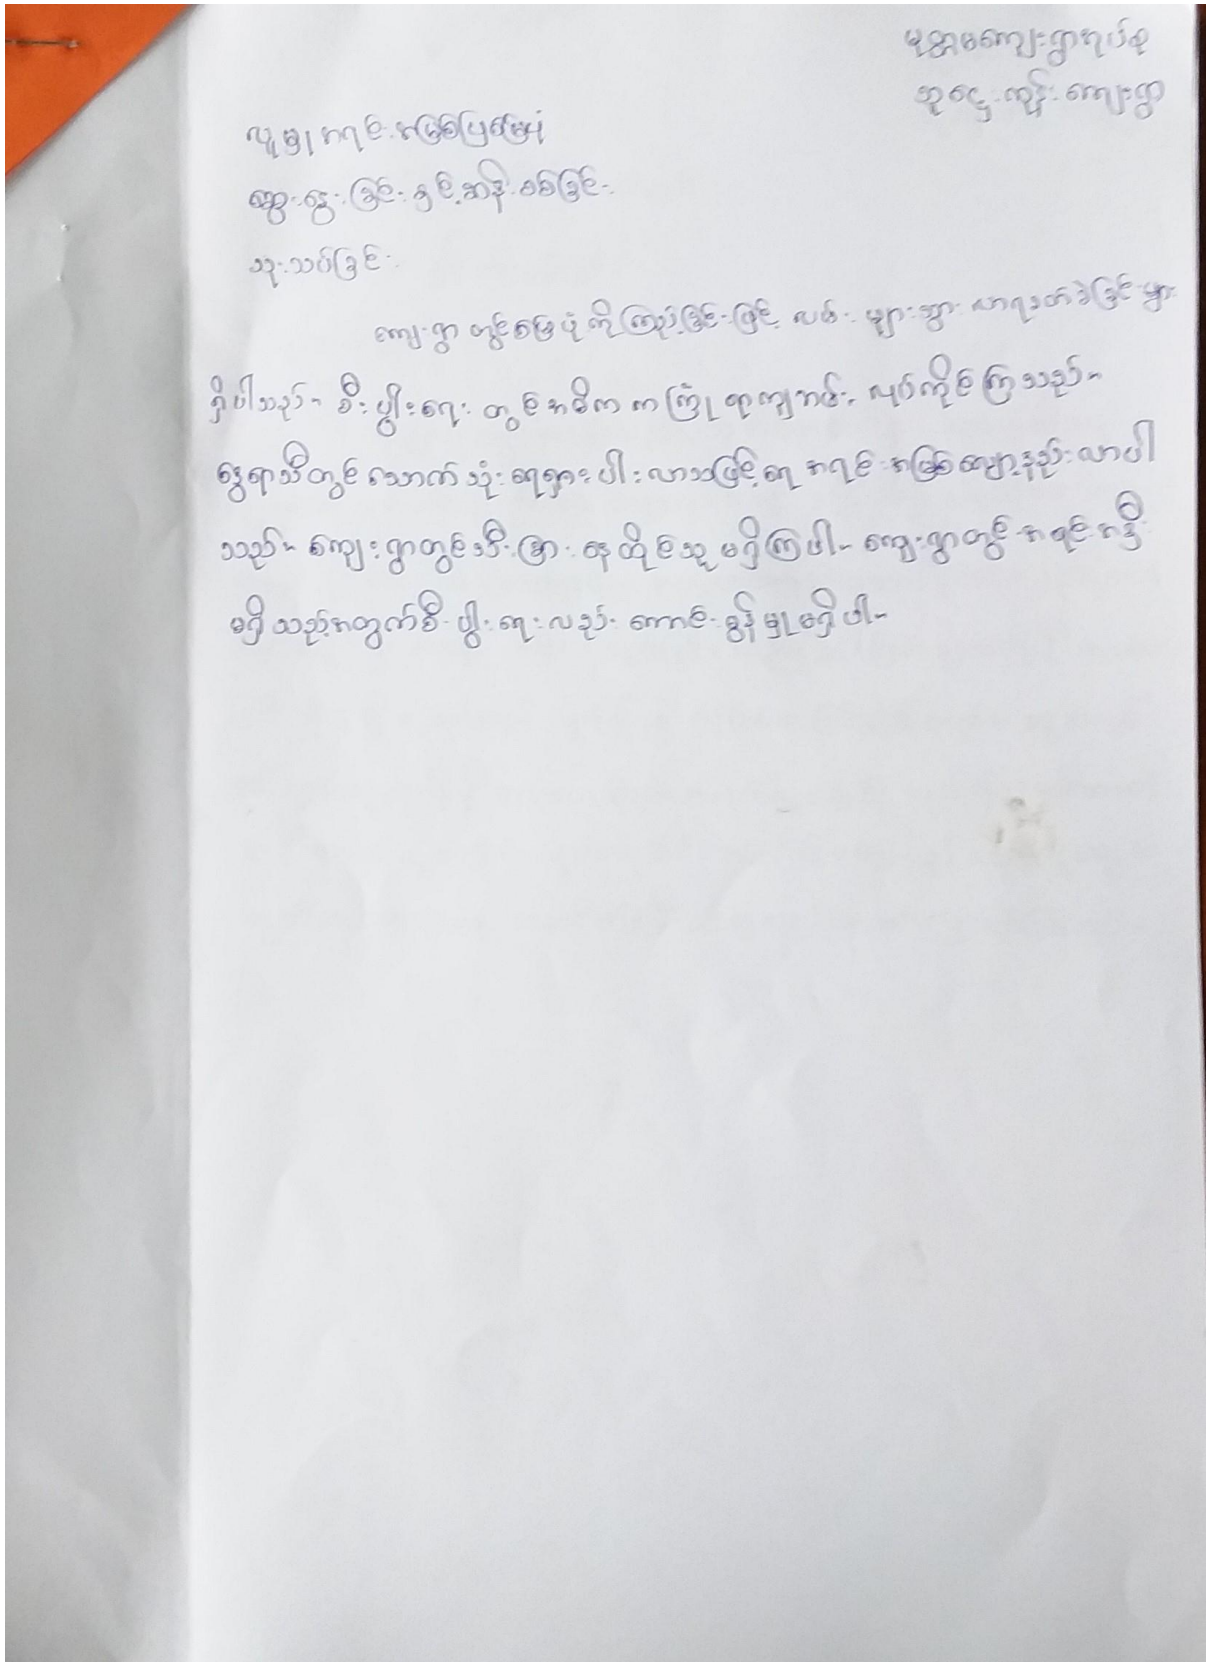 မုတ္တမကျေးရွာအုပ်စု
သူဌေးကုန်းကျေးရွာ
လူမှုအရင်းအမြစ်ပြမြေပုံ
ဆွေးနွေးခြင်းနှင့်ဆန်းစစ်ခြင်း
သုံးသပ်ခြင်း
ကျေးရွာတွင်မြေပုံကိုကြည့်ခြင်းဖြင့် လမ်းများသွားလာရခက်ခဲခြင်းများ
ရှိပါသည်။ စီးပွါးရေးတွင်အဓိက ကြံ လုပ်ကိုင်ကြသည်။
နွေရာသီတွင်သောက်သုံးရေရှားပါးလာသဖြင့်ရေအရင်းအမြစ်လျော့နည်းလာပါ
သည်။ ကျေးရွာတွင်သီးခြားနေထိုင်သူမရှိကြပါ။ ကျေးရွာတွင်အရင်းအနှီး
မရှိသည့်အတွက်စီးပွါးရေးလည်းကောင်းမွန်မှုမရှိပါ။